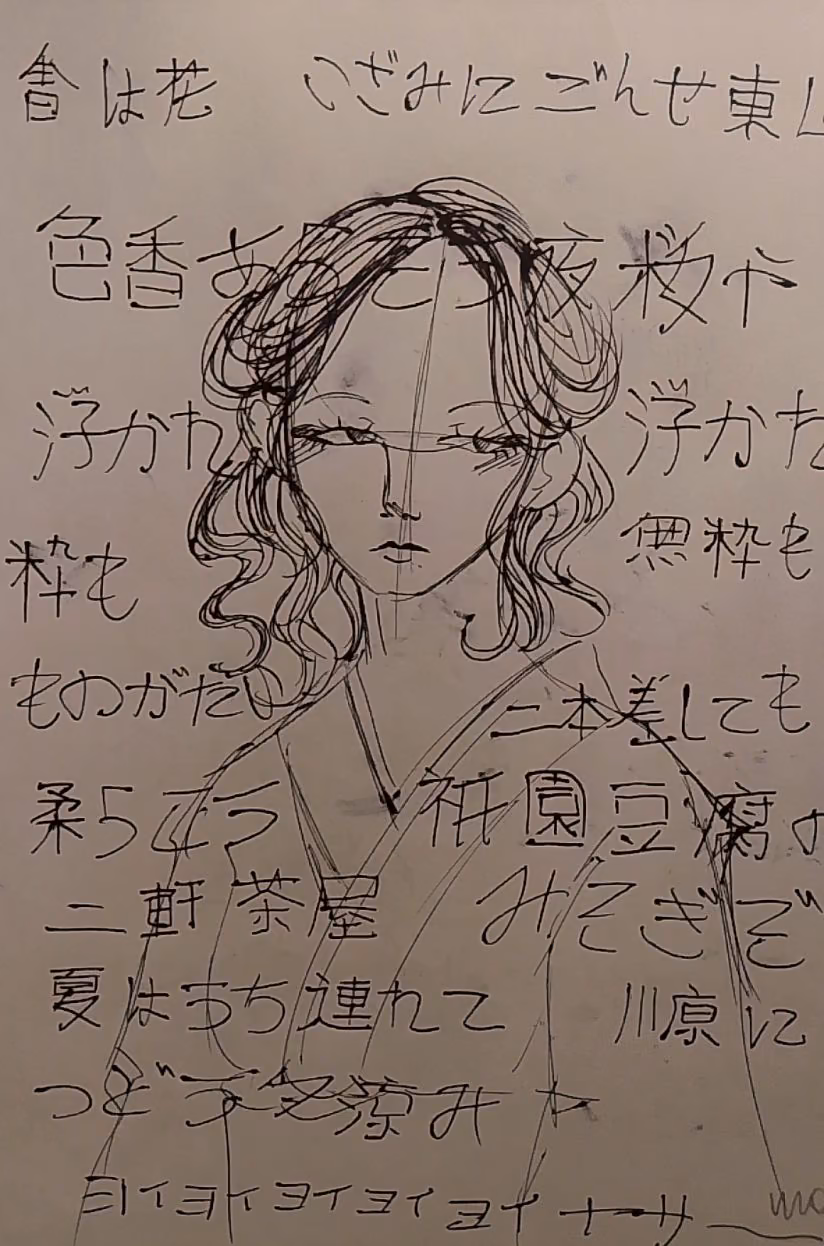 春は花 いざみにごんせ東
色香あらそう夜桜や
浮かれ 浮かれ
粋も 無粋も
ものがたい 二本差しても
柔らこう 祇園豆腐の
二軒茶屋 みそぎぞ
夏はうち連れて 川原に
つどう夕涼み や
ヨイヨイヨイヨイヨイ ナーサー